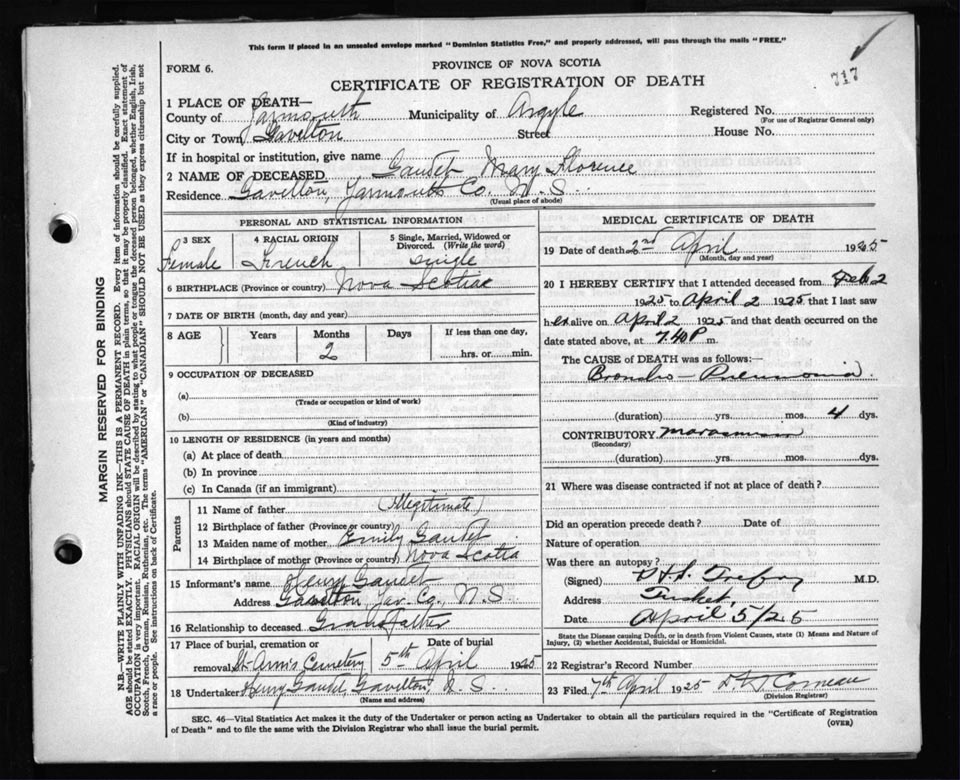 This form if placed in an unsealed envelope marked "Dominion Statistics Free," and properly addressed, will pass through the mails "FREE."
717
FORM 6.
PROVINCE OF NOVA SCOTIA
CERTIFICATE OF REGISTRATION OF DEATH
MARGIN RESERVED FOR BINDING
N.B.—WRITE PLAINLY WITH UNFADING INK—THIS IS A PERMANENT RECORD. Every item of information should be carefully supplied.
AGE should be stated EXACTLY. PHYSICIANS should STATE CAUSE OF DEATH in plain terms, so that it may be properly classified. Exact statement of
OCCUPATION is very important. RACIAL ORIGIN will be described by stating to what people or tongue the deceased person belonged, whether English, Irish,
Scotch, French, German, Russian, Ruthenian, etc. The terms "AMERICAN" or "CANADIAN" SHOULD NOT BE USED as they express citizenship but not
a race or people. See instructions on back of Certificate.
1 PLACE OF DEATH—
County of Yarmouth Municipality of Argyle Registered No.
(For use of Registrar General only)
City or Town Gavelton Street House No.
If in hospital or institution, give name
2 NAME OF DECEASED Gaudet Mary Florence
Residence Gavelton, Yarmouth Co. N.S.
(Usual place of abode)
PERSONAL AND STATISTICAL INFORMATION
3 SEX
Female
4 RACIAL ORIGIN
French
5 Single, Married, Widowed or
Divorced. (Write the word)
single
6 BIRTHPLACE (Province or country) Nova Scotia
7 DATE OF BIRTH (month, day and year)
8 AGE Years Months Days If less than one day,
2 hrs. or min.
9 OCCUPATION OF DECEASED
(a)
(Trade or occupation or kind of work)
(b)
(Kind of industry)
10 LENGTH OF RESIDENCE (in years and months)
(a) At place of death
(b) In province
(c) In Canada (if an immigrant)
Parents
11 Name of father (Illegitimate)
12 Birthplace of father (Province or country)
13 Maiden name of mother Emily Gaudet
14 Birthplace of mother (Province or country) Nova Scotia
15 Informant's name Henry Gaudet
Address Gavelton, Yar. Co., N.S.
16 Relationship to deceased Grandfather
17 Place of burial, cremation or Date of burial
removal St. Ann's Cemetery 5th April 1925
18 Undertaker Henry Gaudet, Gavelton, N.S.
(Name and address)
MEDICAL CERTIFICATE OF DEATH
19 Date of death 2nd April 1925
(Month, day and year)
20 I HEREBY CERTIFY that I attended deceased from Feb 2
1925 to April 2 1925 that I last saw
her alive on April 2 1925 and that death occurred on the
date stated above, at 7.40 P m.
The CAUSE OF DEATH was as follows:
Broncho-Pneumonia
(duration) yrs. mos. 4 dys.
CONTRIBUTORY Marasmus
(Secondary)
(duration) yrs. mos. dys.
21 Where was disease contracted if not at place of death?
Did an operation precede death? Date of
Nature of operation
Was there an autopsy?
(Signed) Trefry M.D.
Address Tusket,
Date April 5/25
State the Disease causing Death, or in death from Violent Causes, state (1) Means and Nature of
Injury, (2) whether Accidental, Suicidal or Homicidal.
22 Registrar's Record Number
23 Filed 7th April 1925 Comeau
(Division Registrar)
SEC. 46—Vital Statistics Act makes it the duty of the Undertaker or person acting as Undertaker to obtain all the particulars required in the "Certificate of Registration
of Death" and to file the same with the Division Registrar who shall issue the burial permit.
(OVER)